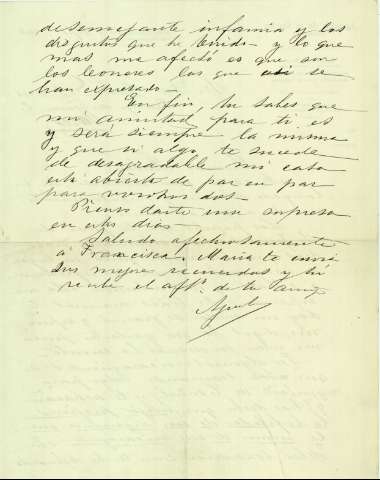 de semejante infamia y los
disgustos que he tenido y lo que
mas me afectó es que son
los leoneses los que asi se
han expresado—
En fin, tu sabes que
mi amistad para ti es
y será siempre la misma
y que si algo te sucede
de desagradable mi casa
está abierta de par en par
para vosotros dos—
Pienso darte una sorpresa
en estos dias
Saludo afectuosamente
a Francisca. Maria te envia
sus mejores recuerdos y tú
recibe el aftº. de tu amigo